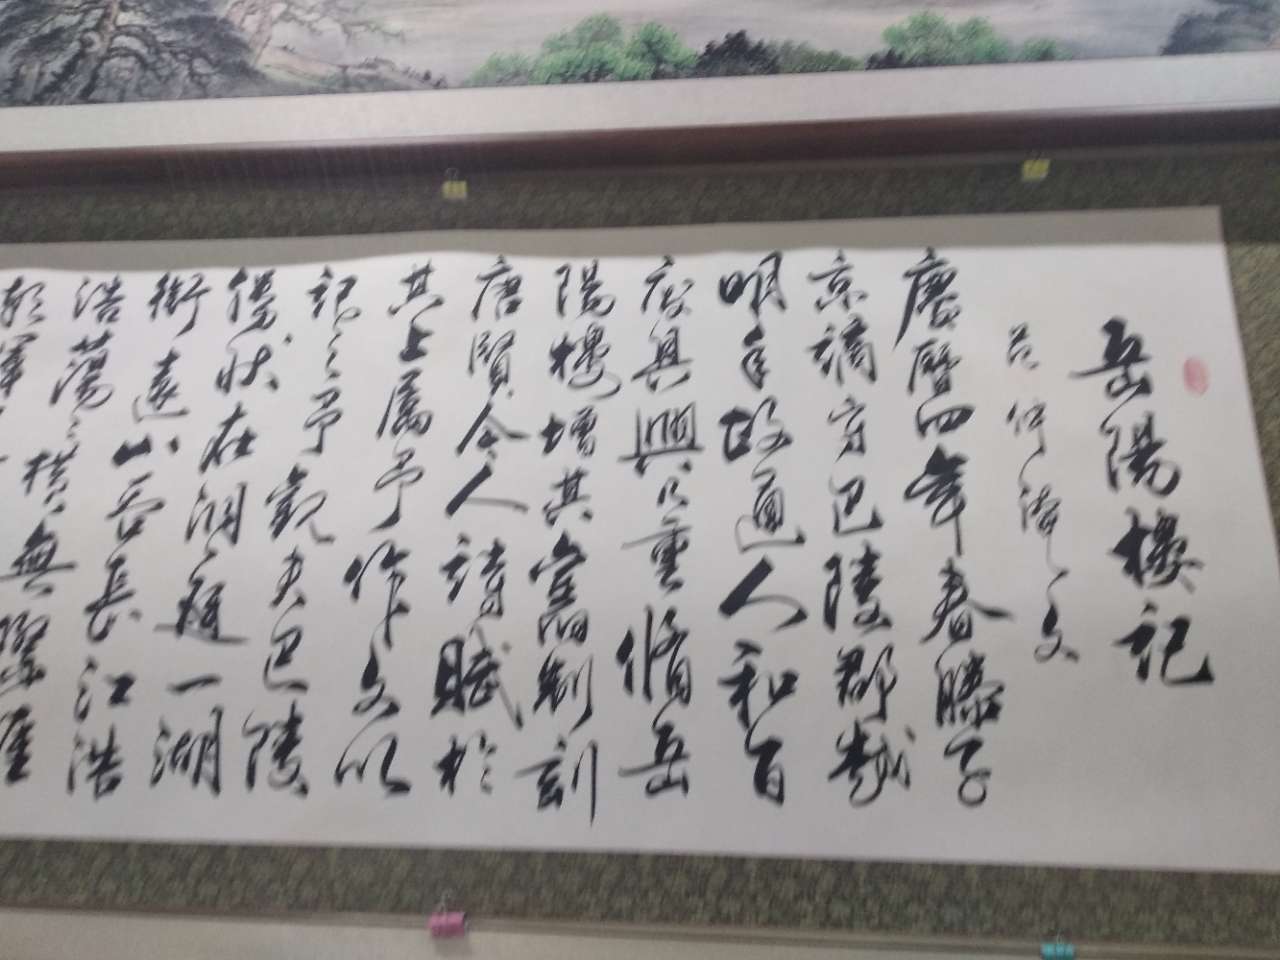 岳陽樓記
范仲淹文
慶曆四年春滕子
京謫守巴陵郡越
明年政通人和百
廢具興乃重脩岳
陽樓增其舊制刻
唐賢今人詩賦於
其上屬予作文以
記之予觀夫巴陵
勝狀在洞庭一湖
銜遠山吞長江浩
浩蕩〻橫無際涯
朝暉